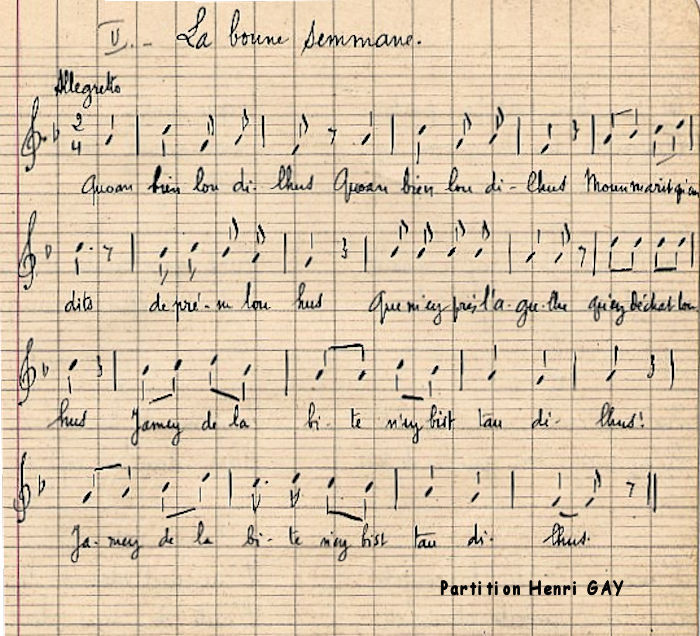 V.- La boune semmane.
Allegretto
2
4
Quoan bien lou di- lhus Quoan bien lou di- lhus Moun marit qu'em
dits de pré-m lou hus Que m'ey prés l'a-gu-lhe qu'ey dechat lou
hus Jamey de la bi- te n'ey bist tau di- lhus!
Ja-mey de la bi- te n'ey bist tau di- lhus.
Partition Henri GAY